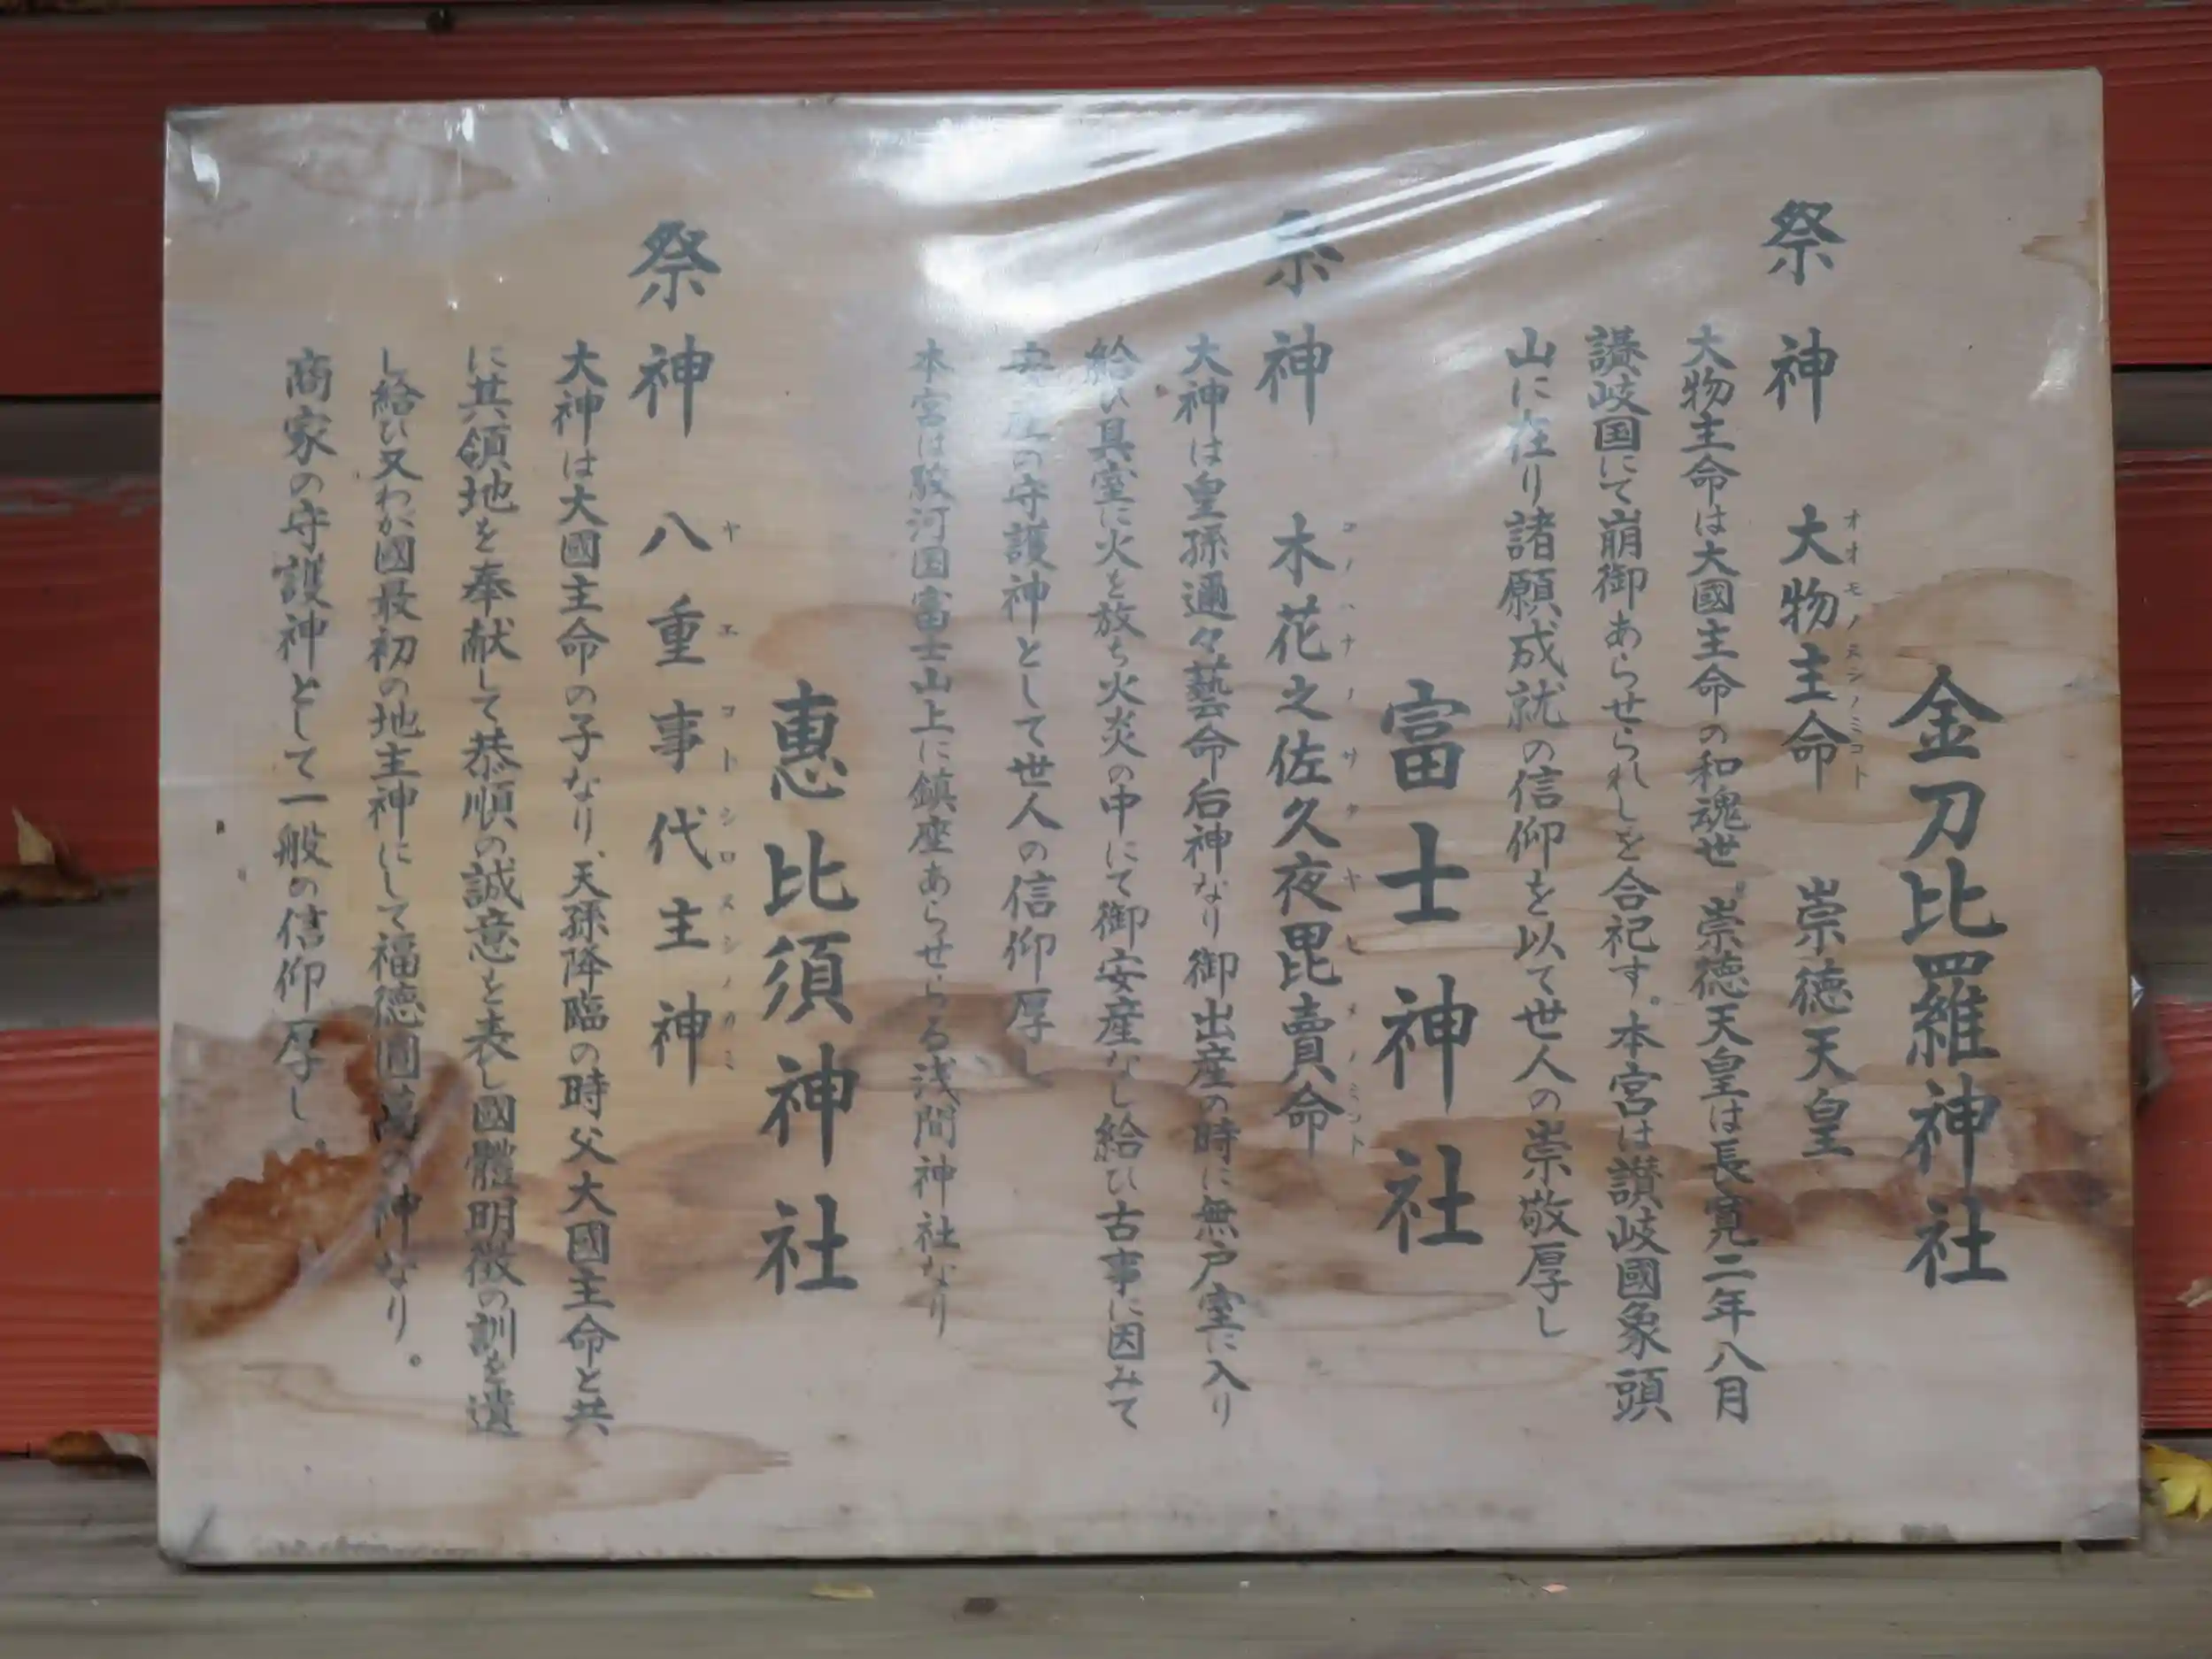 金刀比羅神社
祭神 大物主命 崇徳天皇
オオモノヌシノミコト
大物主命は大國主命の和魂世 崇徳天皇は長寛二年八月
讃岐国にて崩御あらせられしを合祀す。本宮は讃岐國象頭
山に在り諸願成就の信仰を以て世人の崇敬厚し
富士神社
祭神 木花之佐久夜毘賣命
コノハナノサクヤヒメノミコト
大神は皇孫邇々藝命后神なり御出産の時に無戸室に入り
給ひ具室に火を放ち火炎の中にて御安産なし給ひ古事に因みて
安産の守護神として世人の信仰厚し
本宮は駿河国富士山上に鎮座あらせらる浅間神社なり
惠比須神社
祭神 八重事代主神
ヤエコトシロヌシノカミ
大神は大國主命の子なり、天孫降臨の時父大國主命と共
に其領地を奉献して恭順の誠意を表し國體明徴の訓を遺
し給ひ又わが國最初の地主神にして福徳圓萬の神なり。
商家の守護神として一般の信仰厚し。